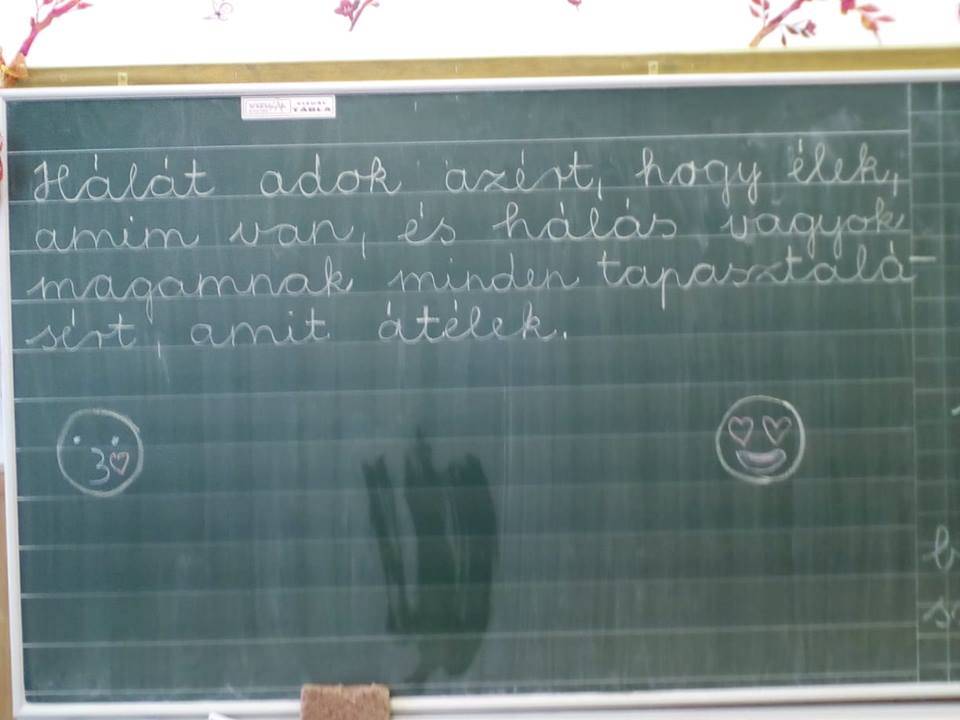 VISUAL
TÁBLA
Hálát adok azért, hogy élek,
amim van, és hálás vagyok
magamnak minden tapasztalá-
sért, amit átélek.